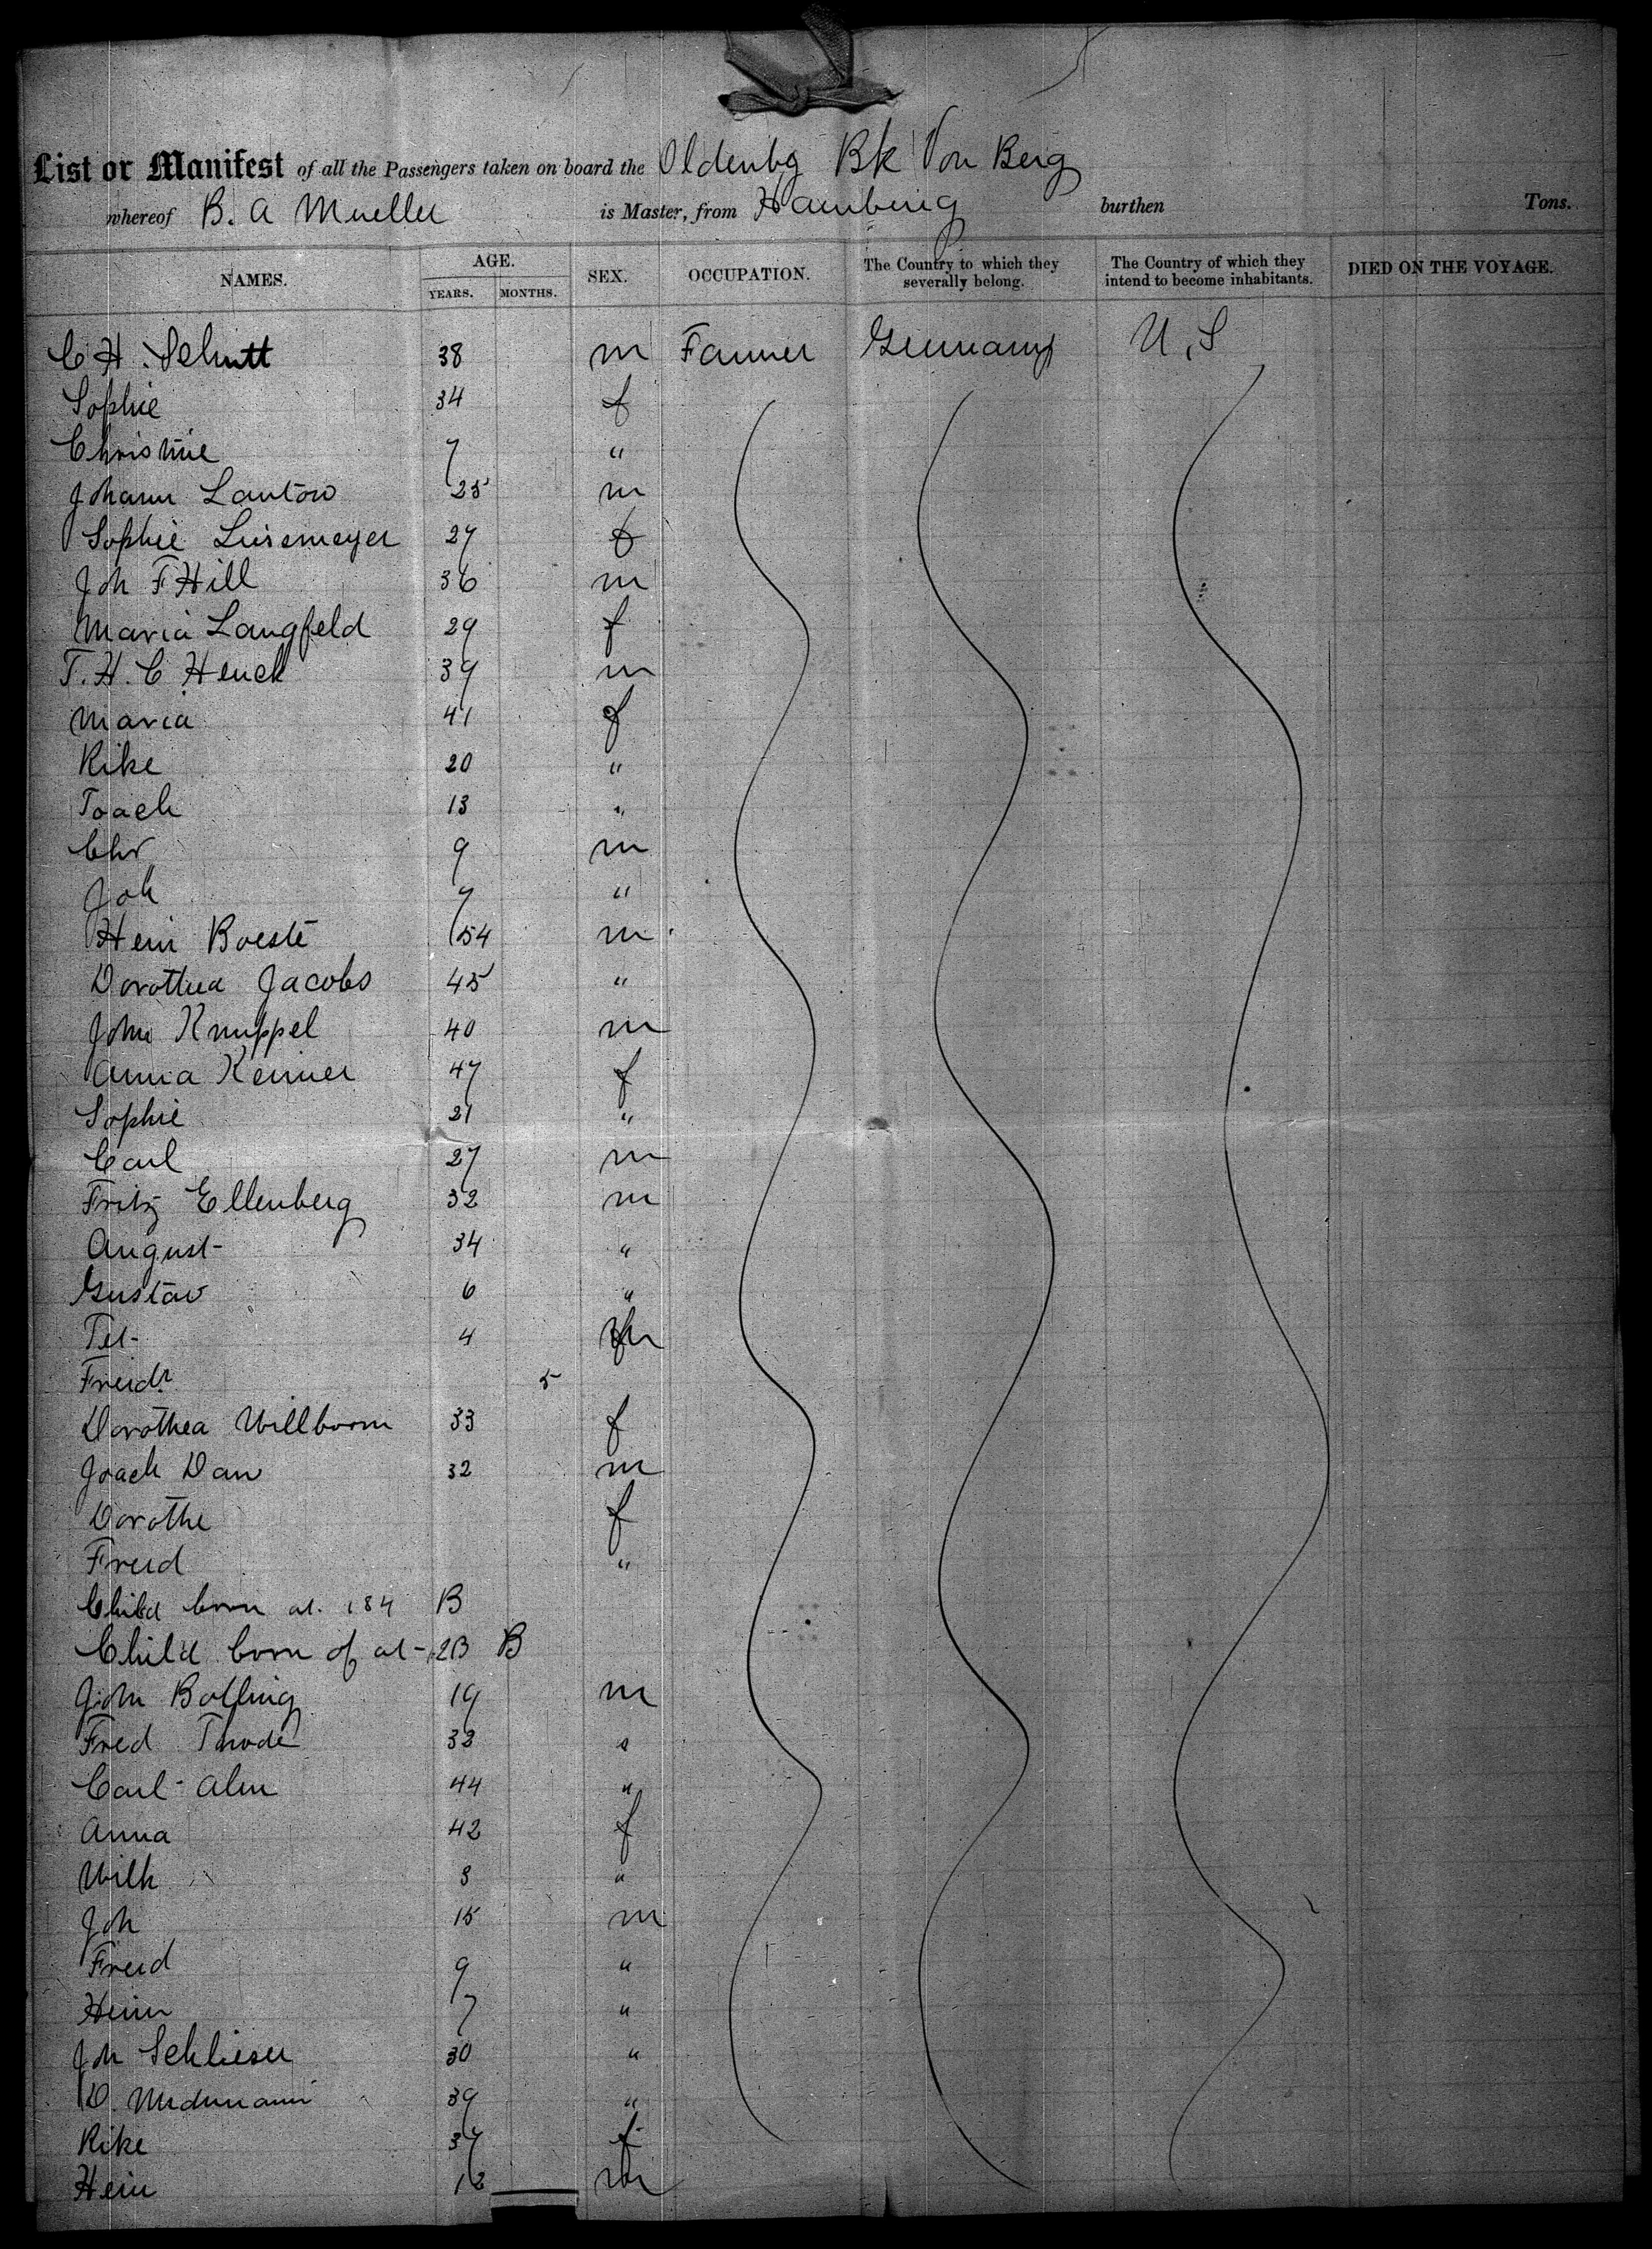 List or Manifest of all the Passengers taken on board the Oldenbg Bk Von Berg
whereof B. A Mueller is Master, from Hamburg burthen Tons.
NAMES. AGE. YEARS. MONTHS. SEX. OCCUPATION. The Country to which they severally belong. The Country of which they intend to become inhabitants. DIED ON THE VOYAGE.
C H. Schutt 38 m Farmer Germany U, S
Sophie 34 f
Christine 7 "
Johann Lantow 25 m
Sophie Luisemeyer 27 f
Joh F Hill 36 m
Maria Langfeld 29 f
T. H. C Henck 39 m
Maria 41 f
Rike 20 "
Joach 13 "
Chr 9 m
Joh 7 "
Hein Boeste 54 m
Dorothea Jacobs 45 "
John Knuppel 40 m
Anna Kenner 47 f
Sophie 21 "
Carl 27 m
Fritz Ellenberg 32 m
August 34 "
Gustav 6 "
4
Freidr 5
Dorothea Willborm 33 f
Joach Dau 32 m
Dorothe f
Freid "
Child born at. 184 B
Child born of at - 2B B
John Bolling 19 m
Fred Thode 33
Carl Alm 44 "
Anna 42 f
Wilh 8 "
Joh 15 m
Freid 9 "
Hein 7 "
Joh Schlieser 30 "
D. 39 "
Rike 37 f
Hein 12 m